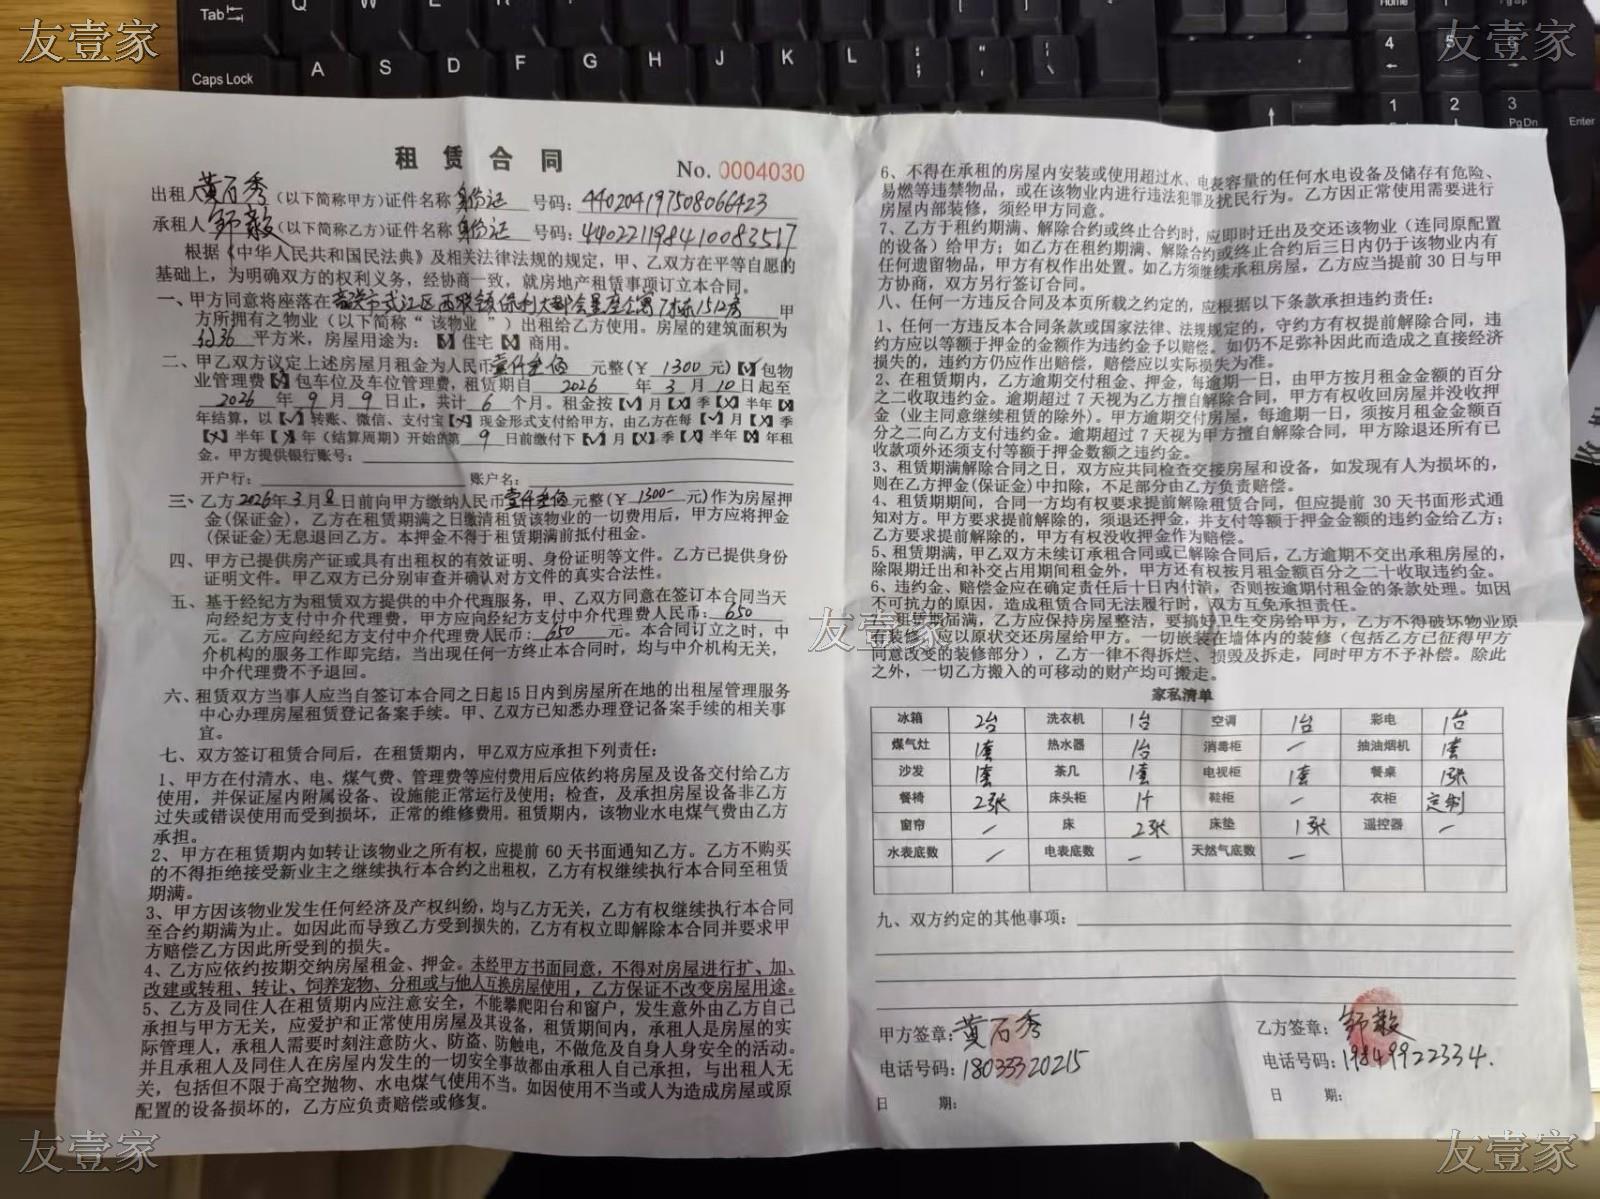 友壹家
友壹家
Tab
Q W E R
Caps Lock A S D F G H J K L
Home
4 5 6
1 2 3
PgDn
Enter
租赁合同
No. 0004030
出租人黄石秀(以下简称甲方)证件名称 身份证 号码:440204197508066423
承租人 (以下简称乙方)证件名称 身份证 号码:440221198410083517
根据《中华人民共和国民法典》及相关法律法规的规定,甲、乙双方在平等自愿的
基础上,为明确双方的权利义务,经协商一致,就房地产租赁事项订立本合同。
一、甲方同意将座落在 市武江区西联镇保利大都会星座公寓7栋1512房 甲
方所拥有之物业(以下简称“该物业”)出租给乙方使用。房屋的建筑面积为
约36 平方米,房屋用途为:【】住宅【】商用。
二、甲乙双方议定上述房屋月租金为人民币壹仟叁佰 元整(¥ 1300 元)【✓】包物
业管理费【】包车位及车位管理费,租赁期自 2026 年 3 月 10 日起至
2026 年 9 月 9 日止,共计 6 个月。租金按【✓】月【×】季【×】半年【×】
年结算,以【✓】转账、微信、支付宝【×】现金形式支付给甲方,由乙方在每【✓】月【×】季
【×】半年【×】年(结算周期)开始的第 9 日前缴付下【✓】月【×】季【×】半年【×】年租
金。甲方提供银行账号:
开户行: 账户名:
三、乙方2026年3月8日前向甲方缴纳人民币壹仟叁佰元整(¥ 1300- 元)作为房屋押
金(保证金),乙方在租赁期满之日缴清租赁该物业的一切费用后,甲方应将押金
(保证金)无息退回乙方。本押金不得于租赁期满前抵付租金。
四、甲方已提供房产证或具有出租权的有效证明、身份证明等文件。乙方已提供身份
证明文件。甲乙双方已分别审查并确认对方文件的真实合法性。
五、基于经纪方为租赁双方提供的中介代理服务,甲、乙双方同意在签订本合同当天
向经纪方支付中介代理费,甲方应向经纪方支付中介代理费人民币: 650
元。乙方应向经纪方支付中介代理费人民币: 650 元。本合同订立之时,中
介机构的服务工作即完结。当出现任何一方终止本合同时,均与中介机构无关,
中介代理费不予退回。
六、租赁双方当事人应当自签订本合同之日起15日内到房屋所在地的出租屋管理服务
中心办理房屋租赁登记备案手续。甲、乙双方已知悉办理登记备案手续的相关事
宜。
七、双方签订租赁合同后,在租赁期内,甲乙双方应承担下列责任:
1、甲方在付清水、电、煤气费、管理费等应付费用后应依约将房屋及设备交付给乙方
使用,并保证屋内附属设备、设施能正常运行及使用;检查,及承担房屋设备非乙方
过失或错误使用而受到损坏,正常的维修费用。租赁期内,该物业水电煤气费由乙方
承担。
2、甲方在租赁期内如转让该物业之所有权,应提前60天书面通知乙方。乙方不购买
的不得拒绝接受新业主之继续执行本合约之出租权,乙方有权继续执行本合同至租赁
期满。
3、甲方因该物业发生任何经济及产权纠纷,均与乙方无关,乙方有权继续执行本合同
至合约期满为止。如因此而导致乙方受到损失的,乙方有权立即解除本合同并要求甲
方赔偿乙方因此所受到的损失。
4、乙方应依约按期交纳房屋租金、押金。未经甲方书面同意,不得对房屋进行扩、加、
改建或转租、转让、饲养宠物、分租或与他人互换房屋使用,乙方保证不改变房屋用途。
5、乙方及同住人在租赁期内应注意安全,不能攀爬阳台和窗户,发生意外由乙方自己
承担与甲方无关,应爱护和正常使用房屋及其设备,租赁期间内,承租人是房屋的实
际管理人,承租人需要时刻注意防火、防盗、防触电,不做危及自身人身安全的活动。
并且承租人及同住人在房屋内发生的一切安全事故都由承租人自己承担,与出租人无
关,包括但不限于高空抛物、水电煤气使用不当。如因使用不当或人为造成房屋或原
配置的设备损坏的,乙方应负责赔偿或修复。
6、不得在承租的房屋内安装或使用超过水、电表容量的任何水电设备及储存有危险、
易燃等违禁物品,或在该物业内进行违法犯罪及扰民行为。乙方因正常使用需要进行
房屋内部装修,须经甲方同意。
7、乙方于租约期满、解除合约或终止合约时,应即时迁出及交还该物业(连同原配置
的设备)给甲方;如乙方在租约期满、解除合约或终止合约后三日内仍于该物业内有
任何遗留物品,甲方有权作出处置。如乙方须继续承租房屋,乙方应当提前30日与甲
方协商,双方另行签订合同。
八、任何一方违反合同及本页所载之约定的,应根据以下条款承担违约责任:
1、任何一方违反本合同条款或国家法律、法规规定的,守约方有权提前解除合同,违
约方应以等额于押金的金额作为违约金予以赔偿。如仍不足弥补因此而造成之直接经济
损失的,违约方仍应作出赔偿,赔偿应以实际损失为准。
2、在租赁期内,乙方逾期交付租金、押金,每逾期一日,由甲方按月租金金额的百分
之二收取违约金。逾期超过7天视为乙方擅自解除合同,甲方有权收回房屋并没收押
金(业主同意继续租赁的除外)。甲方逾期交付房屋,每逾期一日,须按月租金金额百
分之二向乙方支付违约金。逾期超过7天视为甲方擅自解除合同,甲方除退还所有已
收款项外还须支付等额于押金数额之违约金。
3、租赁期满解除合同之日,双方应共同检查交接房屋和设备,如发现有人为损坏的,
则在乙方押金(保证金)中扣除,不足部分由乙方负责赔偿。
4、租赁期期间,合同一方均有权要求提前解除租赁合同,但应提前30天书面形式通
知对方。甲方要求提前解除的,须退还押金,并支付等额于押金金额的违约金给乙方;
乙方要求提前解除的,甲方有权没收押金作为赔偿。
5、租赁期满,甲乙双方未续订承租合同或已解除合同后,乙方逾期不交出承租房屋的,
除限期迁出和补交占用期间租金外,甲方还有权按月租金额百分之二十收取违约金。
6、违约金、赔偿金应在确定责任后十日内付清,否则按逾期付租金的条款处理。如因
不可抗力的原因,造成租赁合同无法履行时,双方互免承担责任。
7、租赁期届满,乙方应保持房屋整洁,要搞好卫生交房给甲方,乙方不得破坏物业原
有装修,应以原状交还房屋给甲方。一切嵌装在墙体内的装修(包括乙方已征得甲方
同意改变的装修部分),乙方一律不得拆烂、损毁及拆走,同时甲方不予补偿。除此
之外,一切乙方搬入的可移动的财产均可搬走。
友壹家
家私清单
冰箱 2台 洗衣机 1台 空调 1台 彩电 1台
煤气灶 1套 热水器 1台 消毒柜 / 抽油烟机 1套
沙发 1套 茶几 1套 电视柜 1套 餐桌 1张
餐椅 2张 床头柜 1个 鞋柜 / 衣柜 定制
窗帘 / 床 2张 床垫 1张 遥控器 /
水表底数 / 电表底数 / 天然气底数 /
九、双方约定的其他事项:
甲方签章:黄石秀 乙方签章:
电话号码:18033320215 电话号码:19849922334.
日 期: 日 期:
友壹家
友壹家